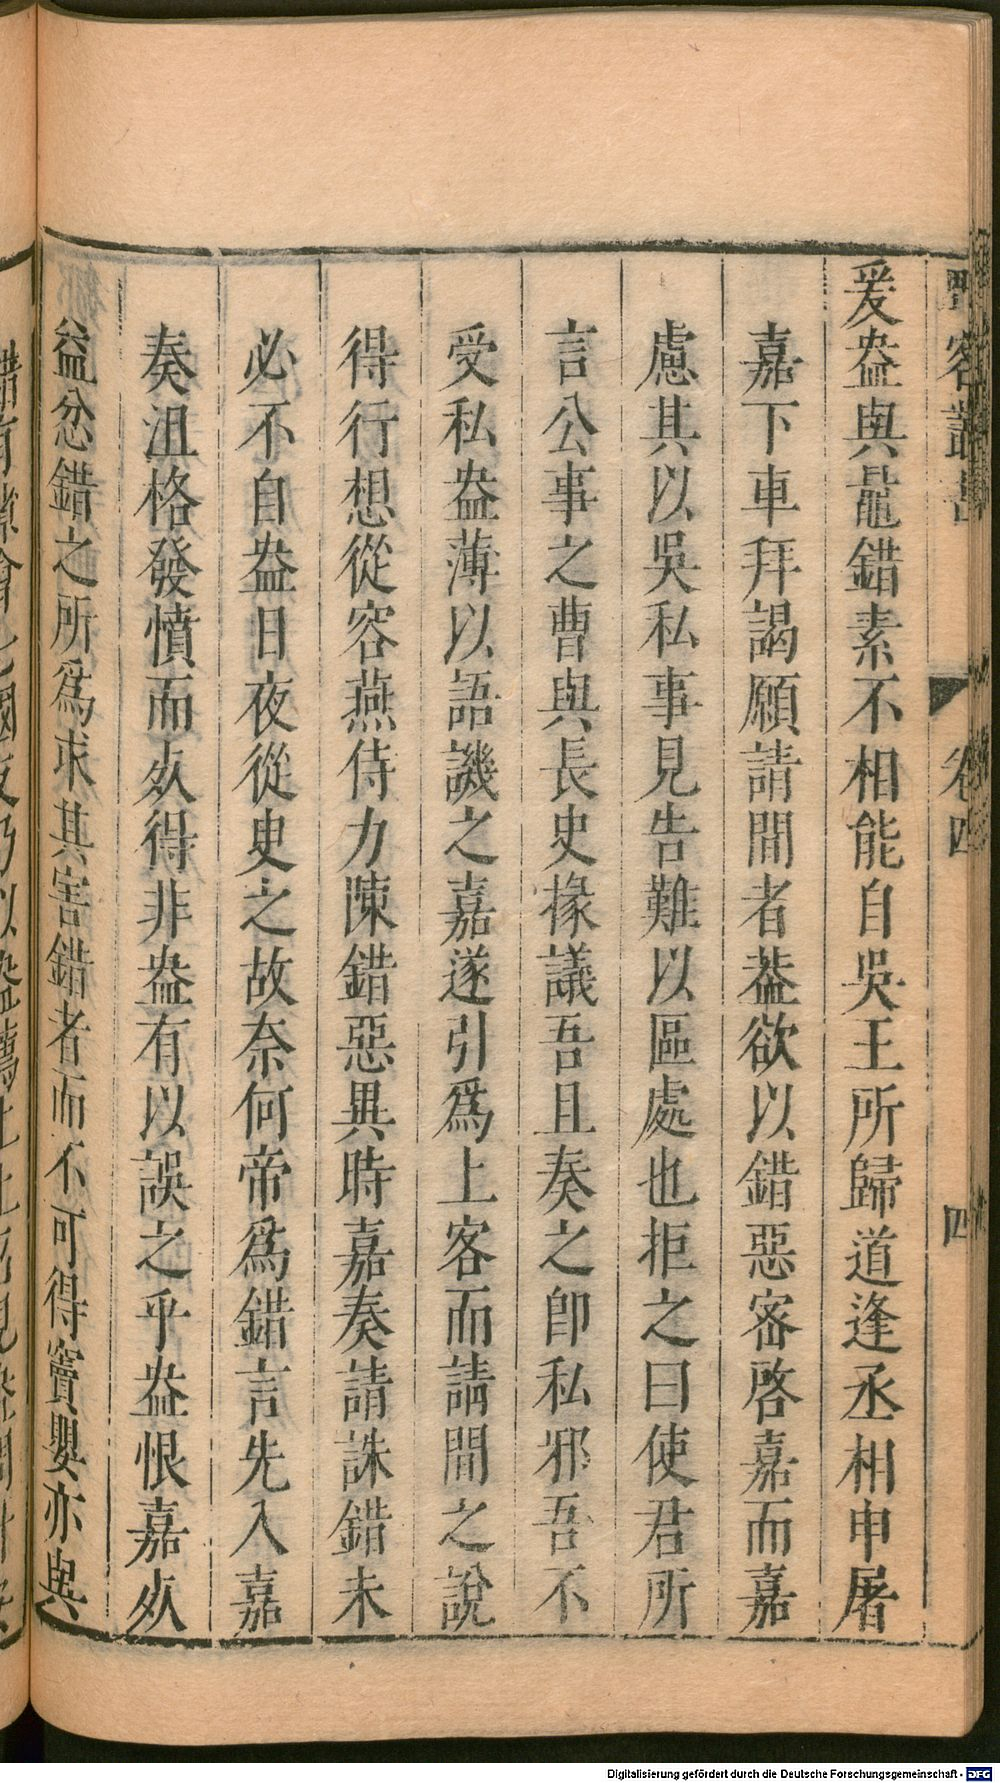 爰盎與鼂錯素不相能自吳王所歸道逢丞相申屠
嘉下車拜謁願請間者葢欲以錯惡密啓嘉而嘉
慮其以吳私事見告難以區處也拒之曰使君所
言公事之曹與長史掾議吾且奏之卽私邪吾不
受私盎薄以語譏之嘉遂引爲上客而請間之說
得行想從容燕侍力陳錯惡異時嘉奏請誅錯未
必不自盎日夜從臾之故奈何帝爲錯言先入嘉
奏沮格發憤而死得非盎有以誤之乎盎恨嘉死
益忿錯之所爲求其害錯者而不可得竇嬰亦與
卷四
四
Digitalisierung gefördert durch die Deutsche Forschungsgemeinschaft - DFG